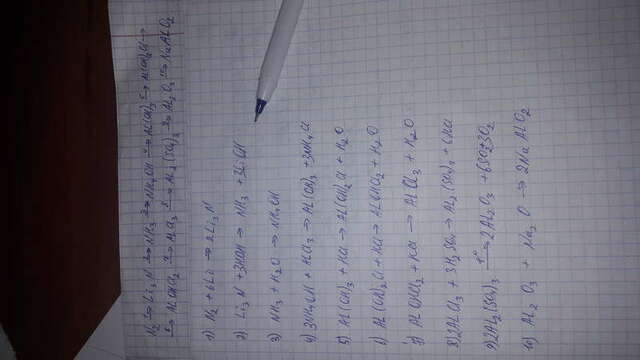 N₂ →¹ Li₃N →² NH₃ →³ NH₄OH →⁴ Al(OH)₃ →⁵ Al(OH)₂Cl →
→⁶ AlOHCl₂ →⁷ AlCl₃ →⁸ Al₂(SO₄)₃ →⁹ Al₂O₃ →¹⁰ NaAlO₂
1) N₂ + 6Li → 2Li₃N
2) Li₃N + 3HOH → NH₃ + 3LiOH
3) NH₃ + H₂O → NH₄OH
4) 3NH₄OH + AlCl₃ → Al(OH)₃ + 3NH₄Cl
5) Al(OH)₃ + HCl → Al(OH)₂Cl + H₂O
6) Al(OH)₂Cl + HCl → AlOHCl₂ + H₂O
7) AlOHCl₂ + HCl → AlCl₃ + H₂O
8) 2AlCl₃ + 3H₂SO₄ → Al₂(SO₄)₃ + 6HCl
9) 2Al₂(SO₄)₃ →t° 2Al₂O₃ + 6SO₂ + 3O₂
10) Al₂O₃ + Na₂O → 2NaAlO₂